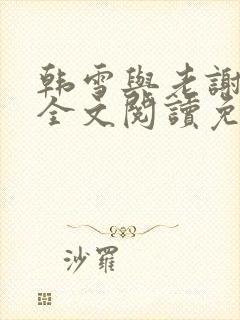 韩雪與老謝
全文閱讀免
沙羅